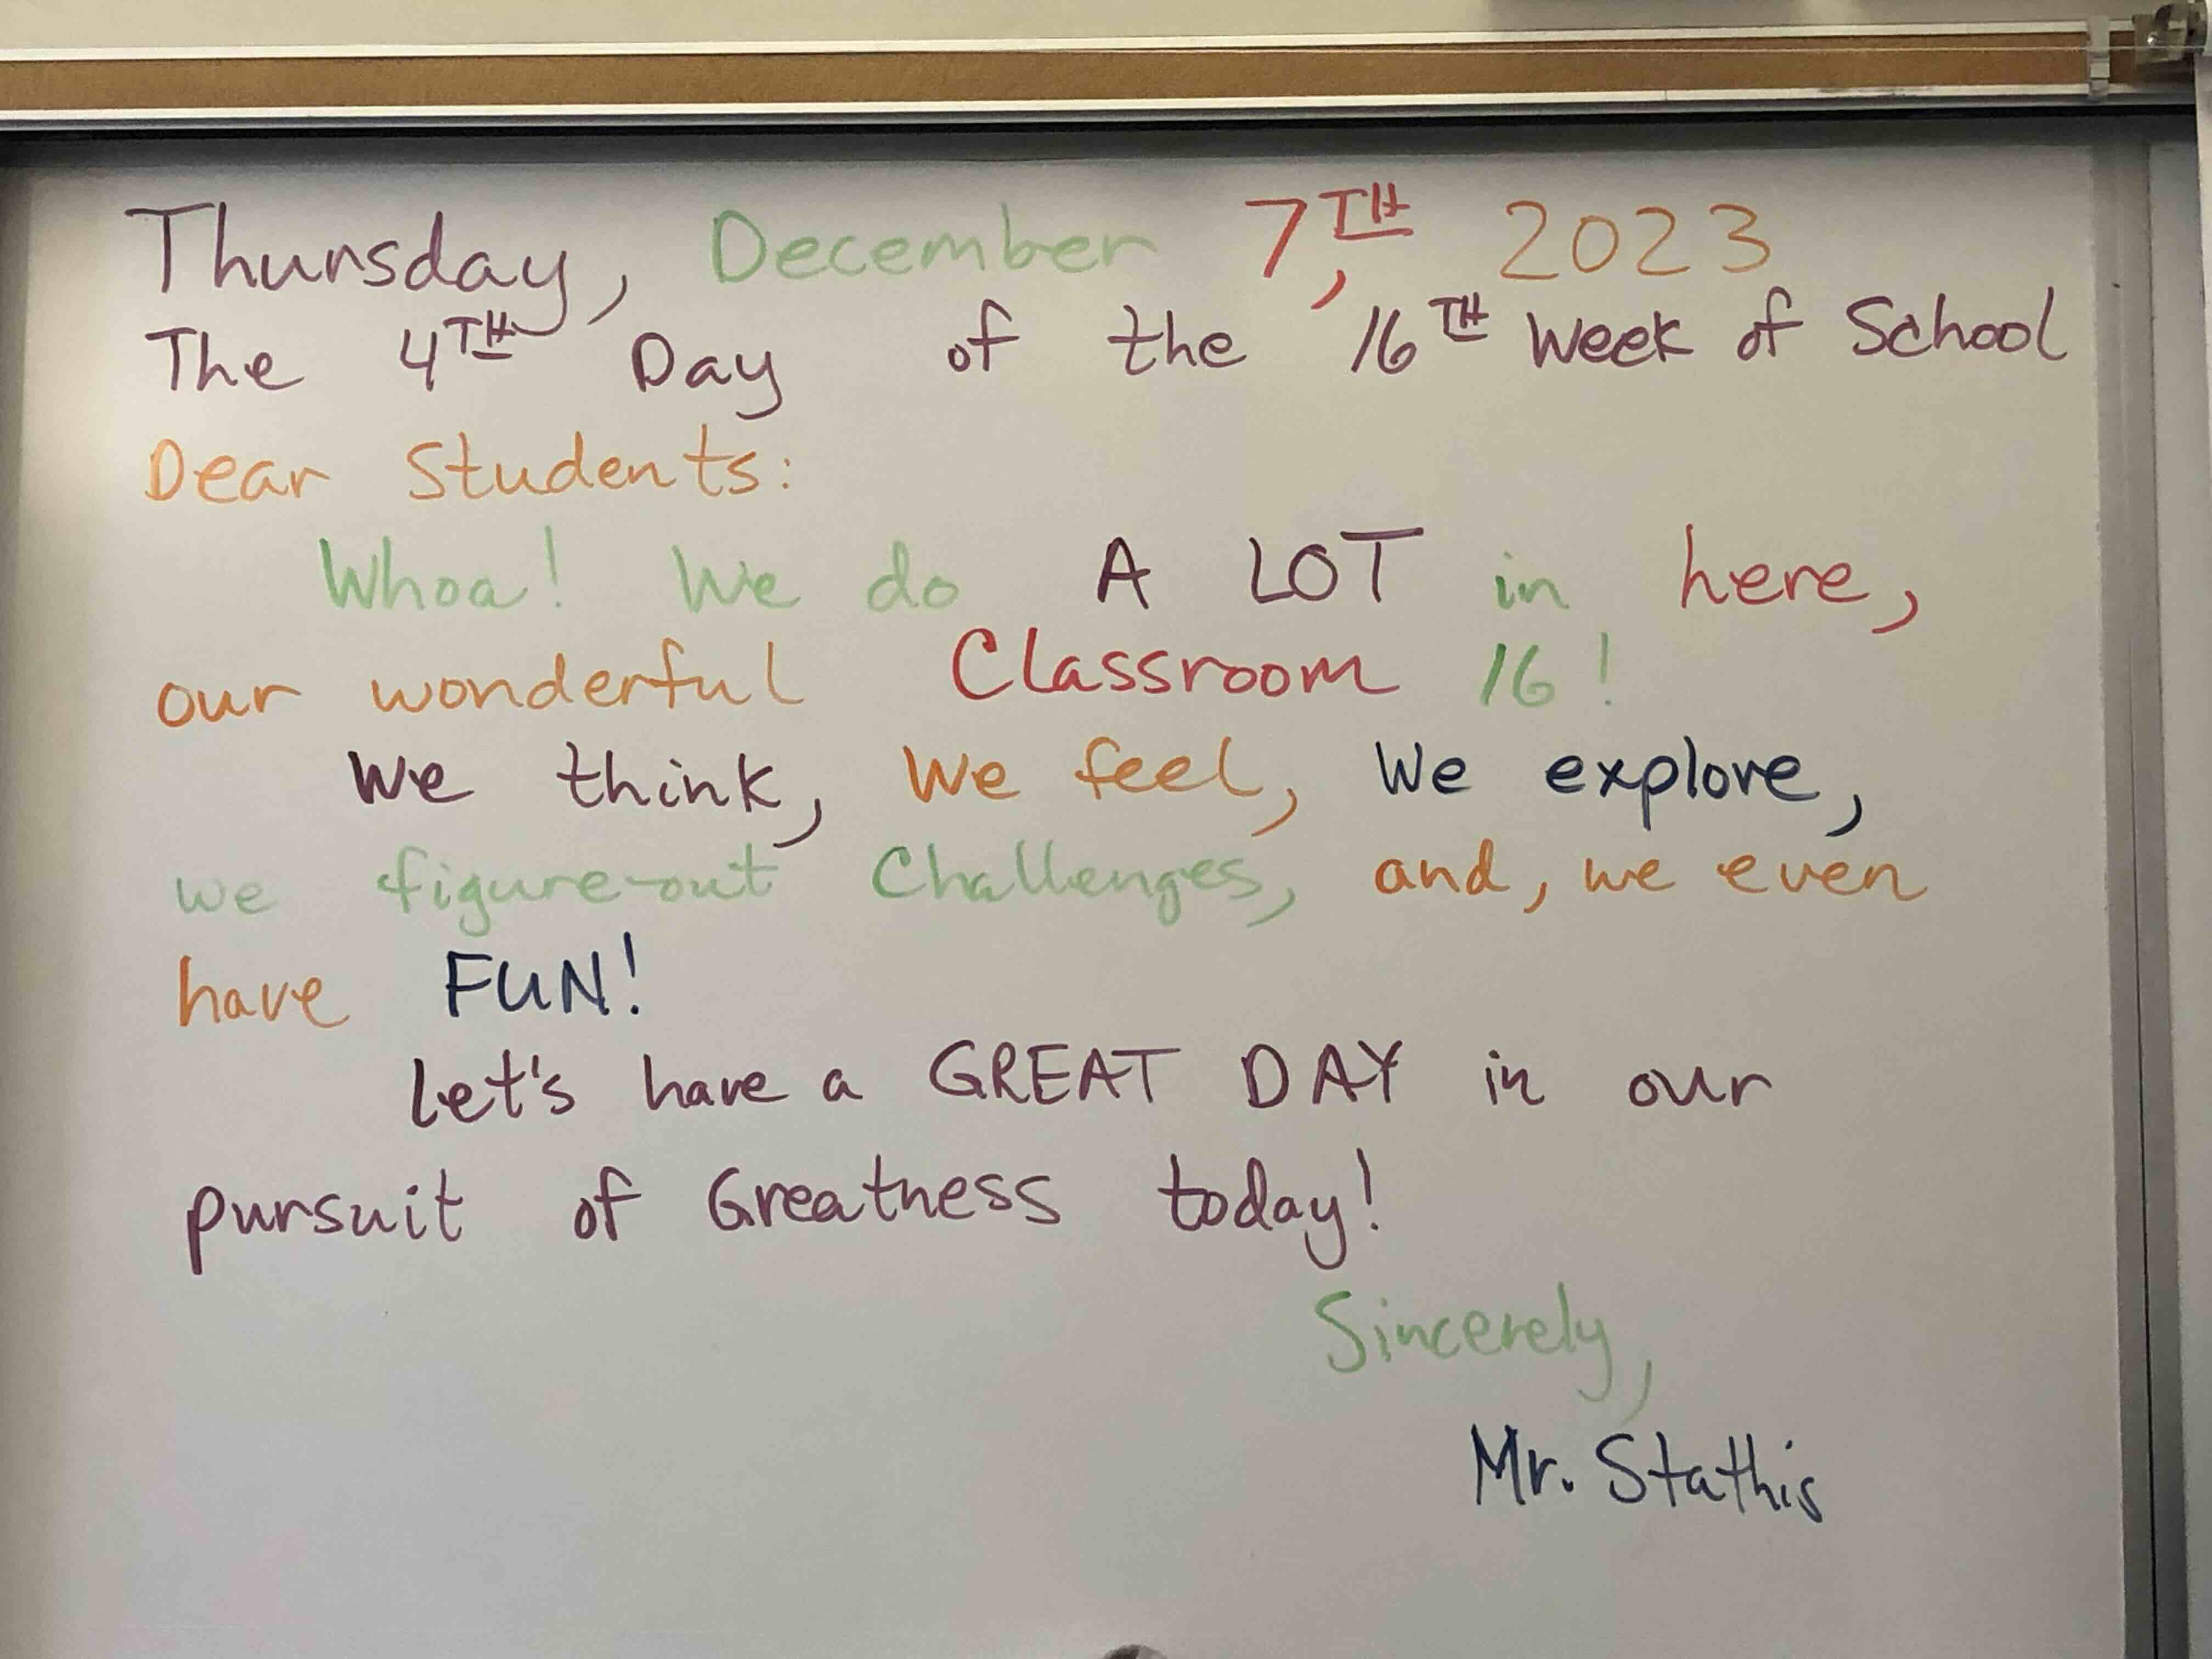 Thursday, December 7TH, 2023
The 4TH Day of the 16TH Week of School
Dear Students:
Whoa! We do A LOT in here,
our wonderful Classroom 16!
We think, we feel, we explore,
we figure-out challenges, and, we even
have FUN!
Let's have a GREAT DAY in our
pursuit of Greatness today!
Sincerely,
Mr. Stathis